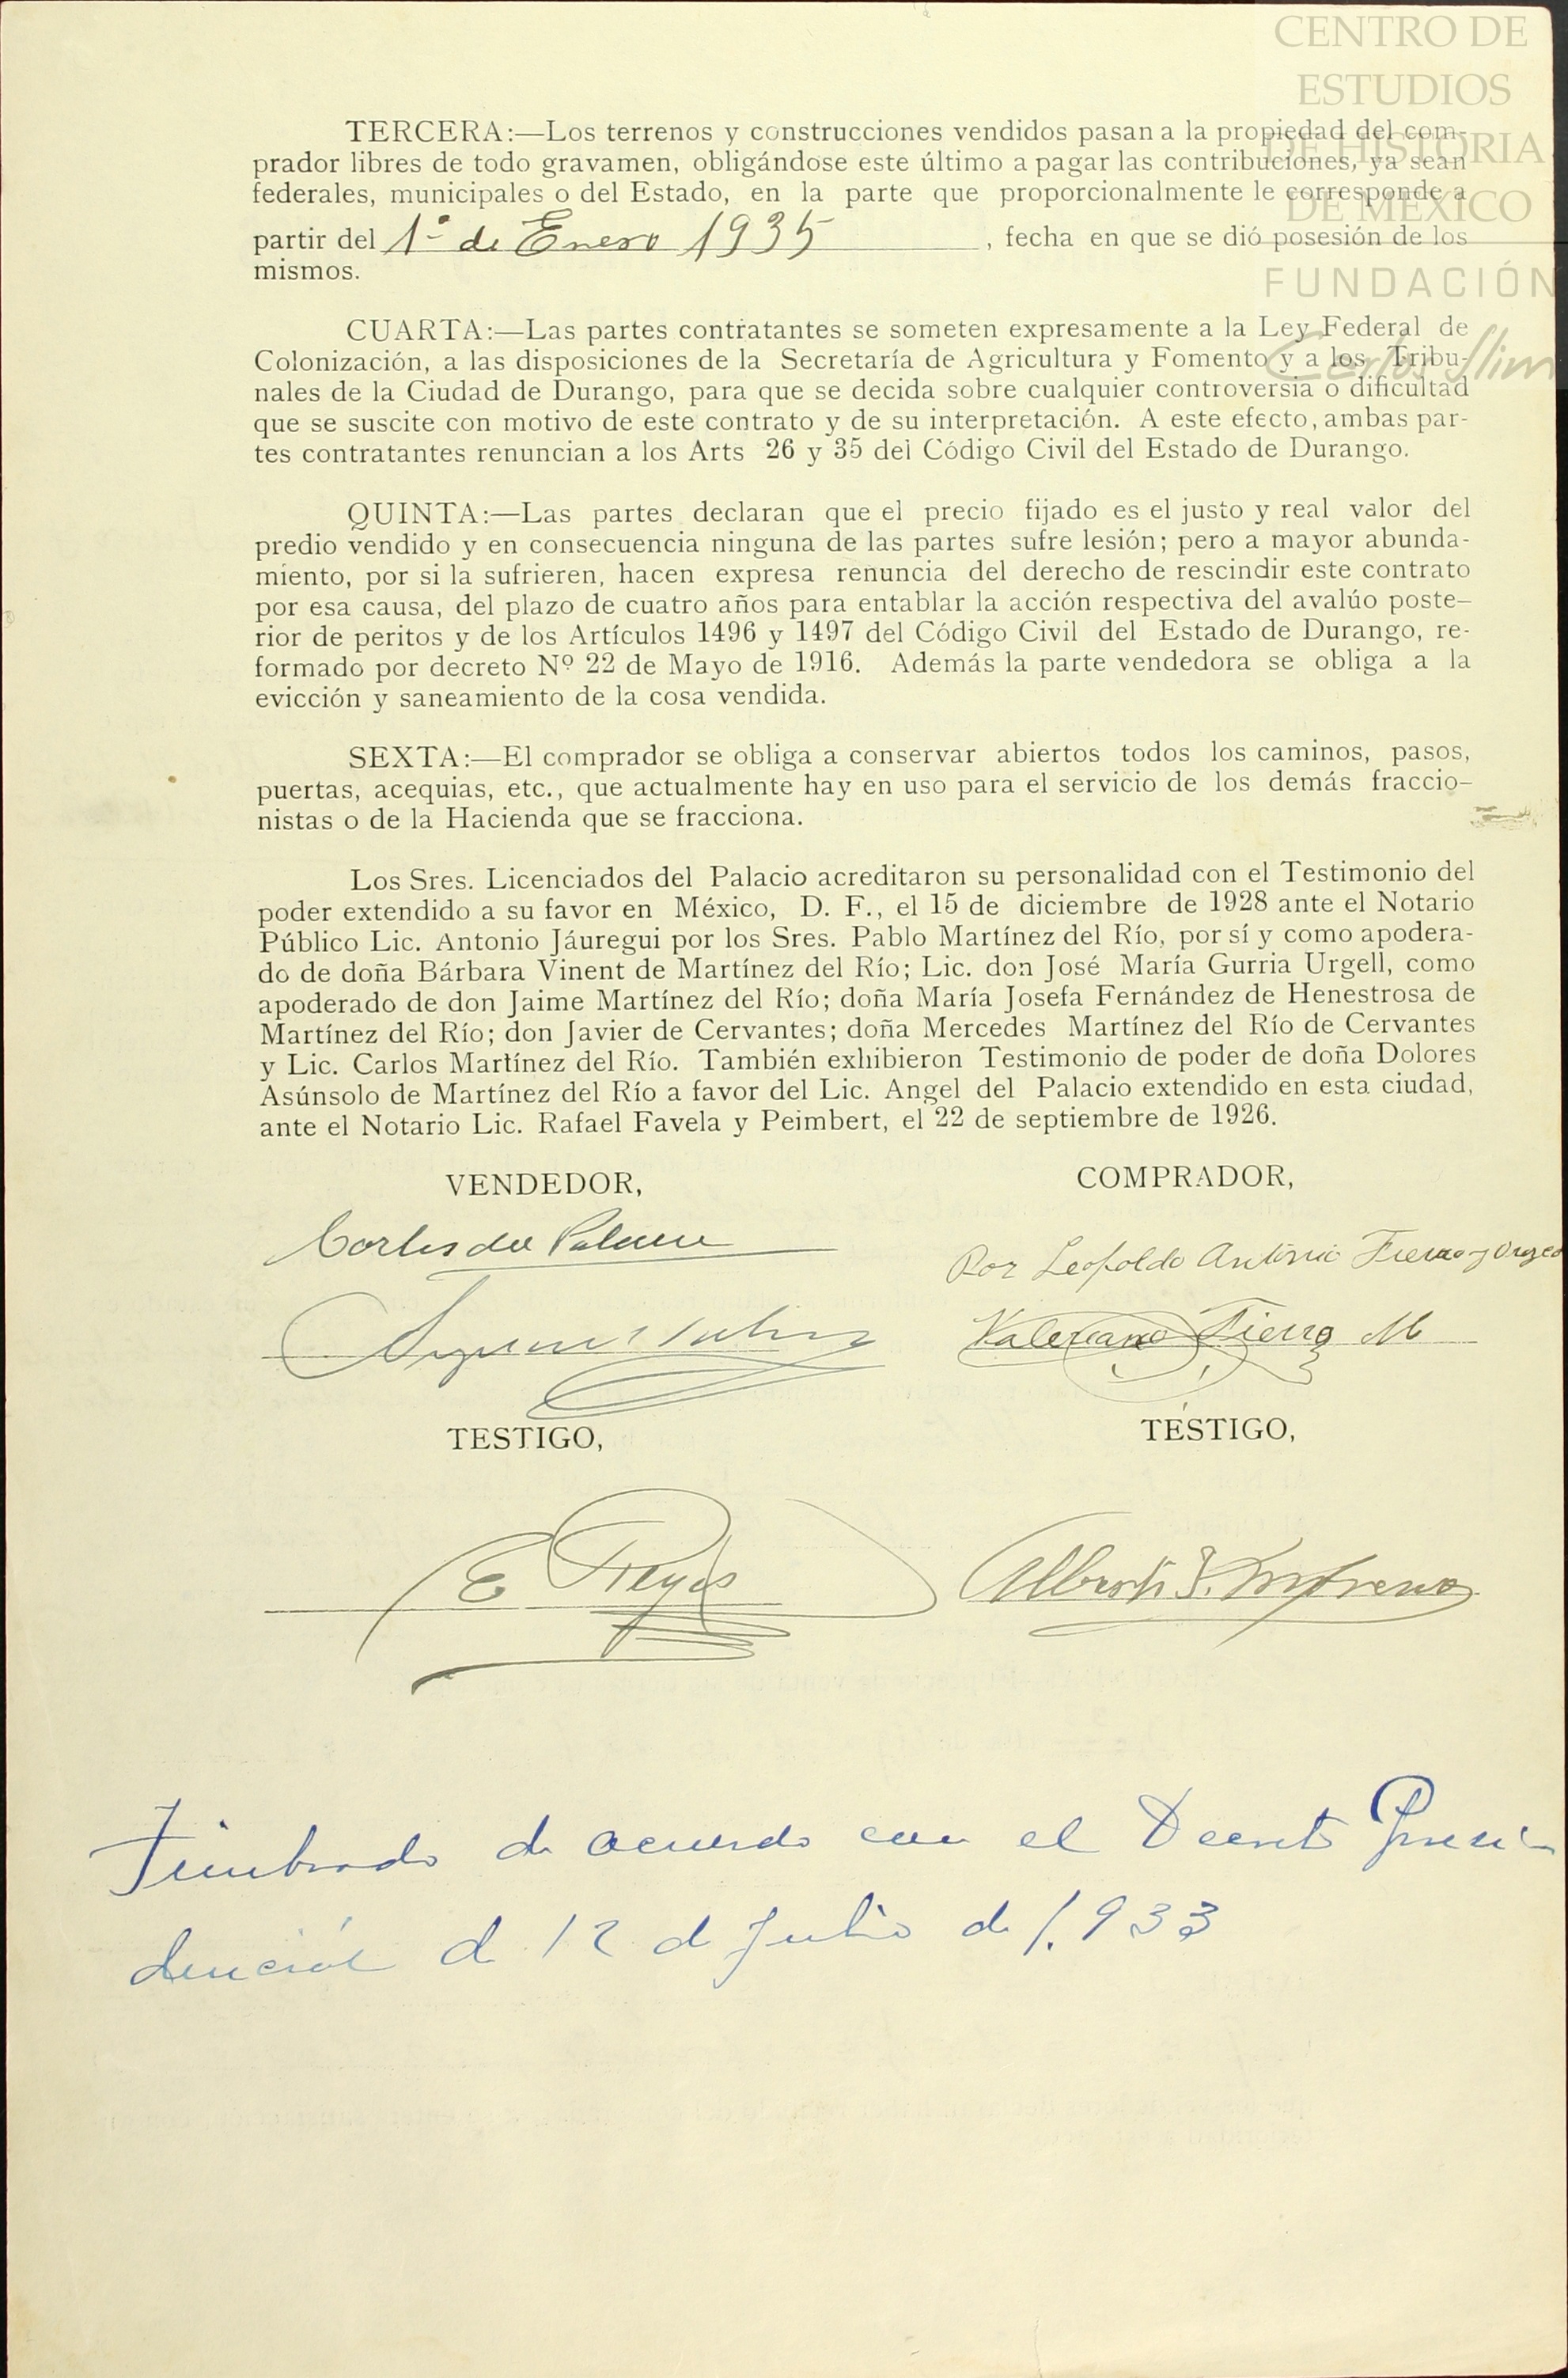 CENTRO DE
ESTUDIOS
DE HISTORIA
DE MÉXICO
FUNDACIÓN
Carlos Slim
TERCERA:—Los terrenos y construcciones vendidos pasan a la propiedad del com-
prador libres de todo gravamen, obligándose este último a pagar las contribuciones, ya sean
federales, municipales o del Estado, en la parte que proporcionalmente le corresponde a
partir del 1º de Enero 1935, fecha en que se dió posesión de los
mismos.
CUARTA:—Las partes contratantes se someten expresamente a la Ley Federal de
Colonización, a las disposiciones de la Secretaría de Agricultura y Fomento y a los Tribu-
nales de la Ciudad de Durango, para que se decida sobre cualquier controversia o dificultad
que se suscite con motivo de este contrato y de su interpretación. A este efecto, ambas par-
tes contratantes renuncian a los Arts 26 y 35 del Código Civil del Estado de Durango.
QUINTA:—Las partes declaran que el precio fijado es el justo y real valor del
predio vendido y en consecuencia ninguna de las partes sufre lesión; pero a mayor abunda-
miento, por si la sufrieren, hacen expresa renuncia del derecho de rescindir este contrato
por esa causa, del plazo de cuatro años para entablar la acción respectiva del avalúo poste-
rior de peritos y de los Artículos 1496 y 1497 del Código Civil del Estado de Durango, re-
formado por decreto Nº 22 de Mayo de 1916. Además la parte vendedora se obliga a la
evicción y saneamiento de la cosa vendida.
SEXTA:—El comprador se obliga a conservar abiertos todos los caminos, pasos,
puertas, acequias, etc., que actualmente hay en uso para el servicio de los demás fraccio-
nistas o de la Hacienda que se fracciona.
Los Sres. Licenciados del Palacio acreditaron su personalidad con el Testimonio del
poder extendido a su favor en México, D. F., el 15 de diciembre de 1928 ante el Notario
Público Lic. Antonio Jáuregui por los Sres. Pablo Martínez del Río, por sí y como apodera-
do de doña Bárbara Vinent de Martínez del Río; Lic. don José María Gurria Urgell, como
apoderado de don Jaime Martínez del Río; doña María Josefa Fernández de Henestrosa de
Martínez del Río; don Javier de Cervantes; doña Mercedes Martínez del Río de Cervantes
y Lic. Carlos Martínez del Río. También exhibieron Testimonio de poder de doña Dolores
Asúnsolo de Martínez del Río a favor del Lic. Angel del Palacio extendido en esta ciudad,
ante el Notario Lic. Rafael Favela y Peimbert, el 22 de septiembre de 1926.
VENDEDOR,
COMPRADOR,
Carlos del Palacio
Por Leopoldo Antonio Fierro y
Valeriano Fierro M
TESTIGO,
TESTIGO,
E Reyes
Alberto
Timbrado de acuerdo con el Decreto Presi-
dencial de 12 de Julio de 1.933